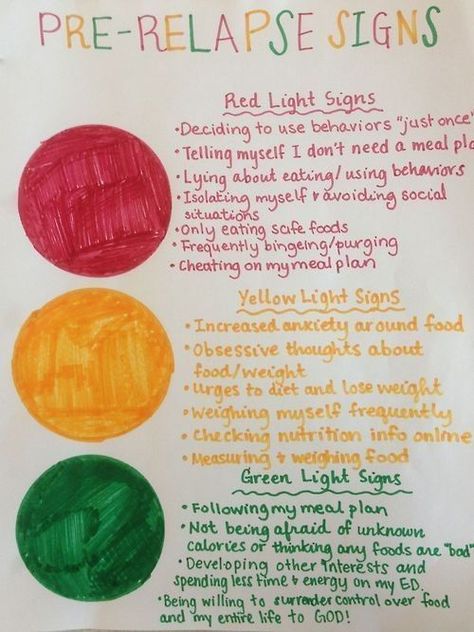 PRE-RELAPSE SIGNS
Red Light Signs
• Deciding to use behaviors "just once"
• Telling myself I don't need a meal pla
• Lying about eating/using behaviors
• Isolating myself & avoiding social
situations
• Only eating safe foods
• Frequently bingeing/purging
• Cheating on my meal plan
Yellow Light Signs
• Increased anxiety around food
• Obsessive thoughts about
food/weight
• Urges to diet and lose weight
• Weighing myself frequently
• Checking nutrition info online
• Measuring & weighing food
Green Light Signs
• Following my meal plan
• Not being afraid of unknown
calories or thinking any foods are "bad"
• Developing other interests and
spending less time & energy on my ED.
• Being willing to surrender control over food
and my entire life to GOD!